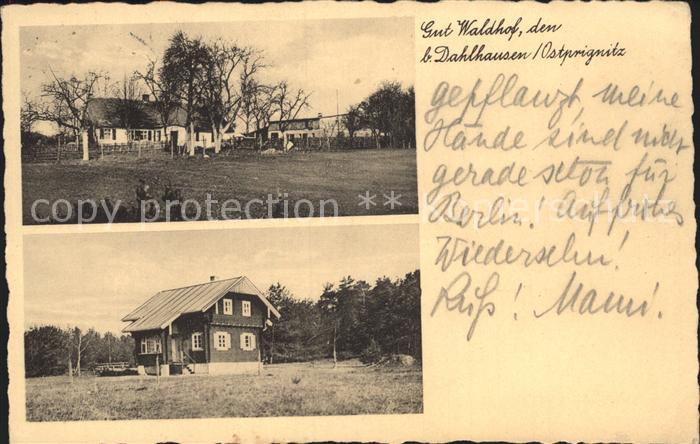 Gut Waldhof, den
b. Dahlhausen / Ostprignitz
gepflanzt, meine
Hände sind nicht
gerade schön für
Berlin! Auf frohes
Wiedersehn!
Kuß! Mami.
copy proof ** copy proof ** kopierschutz